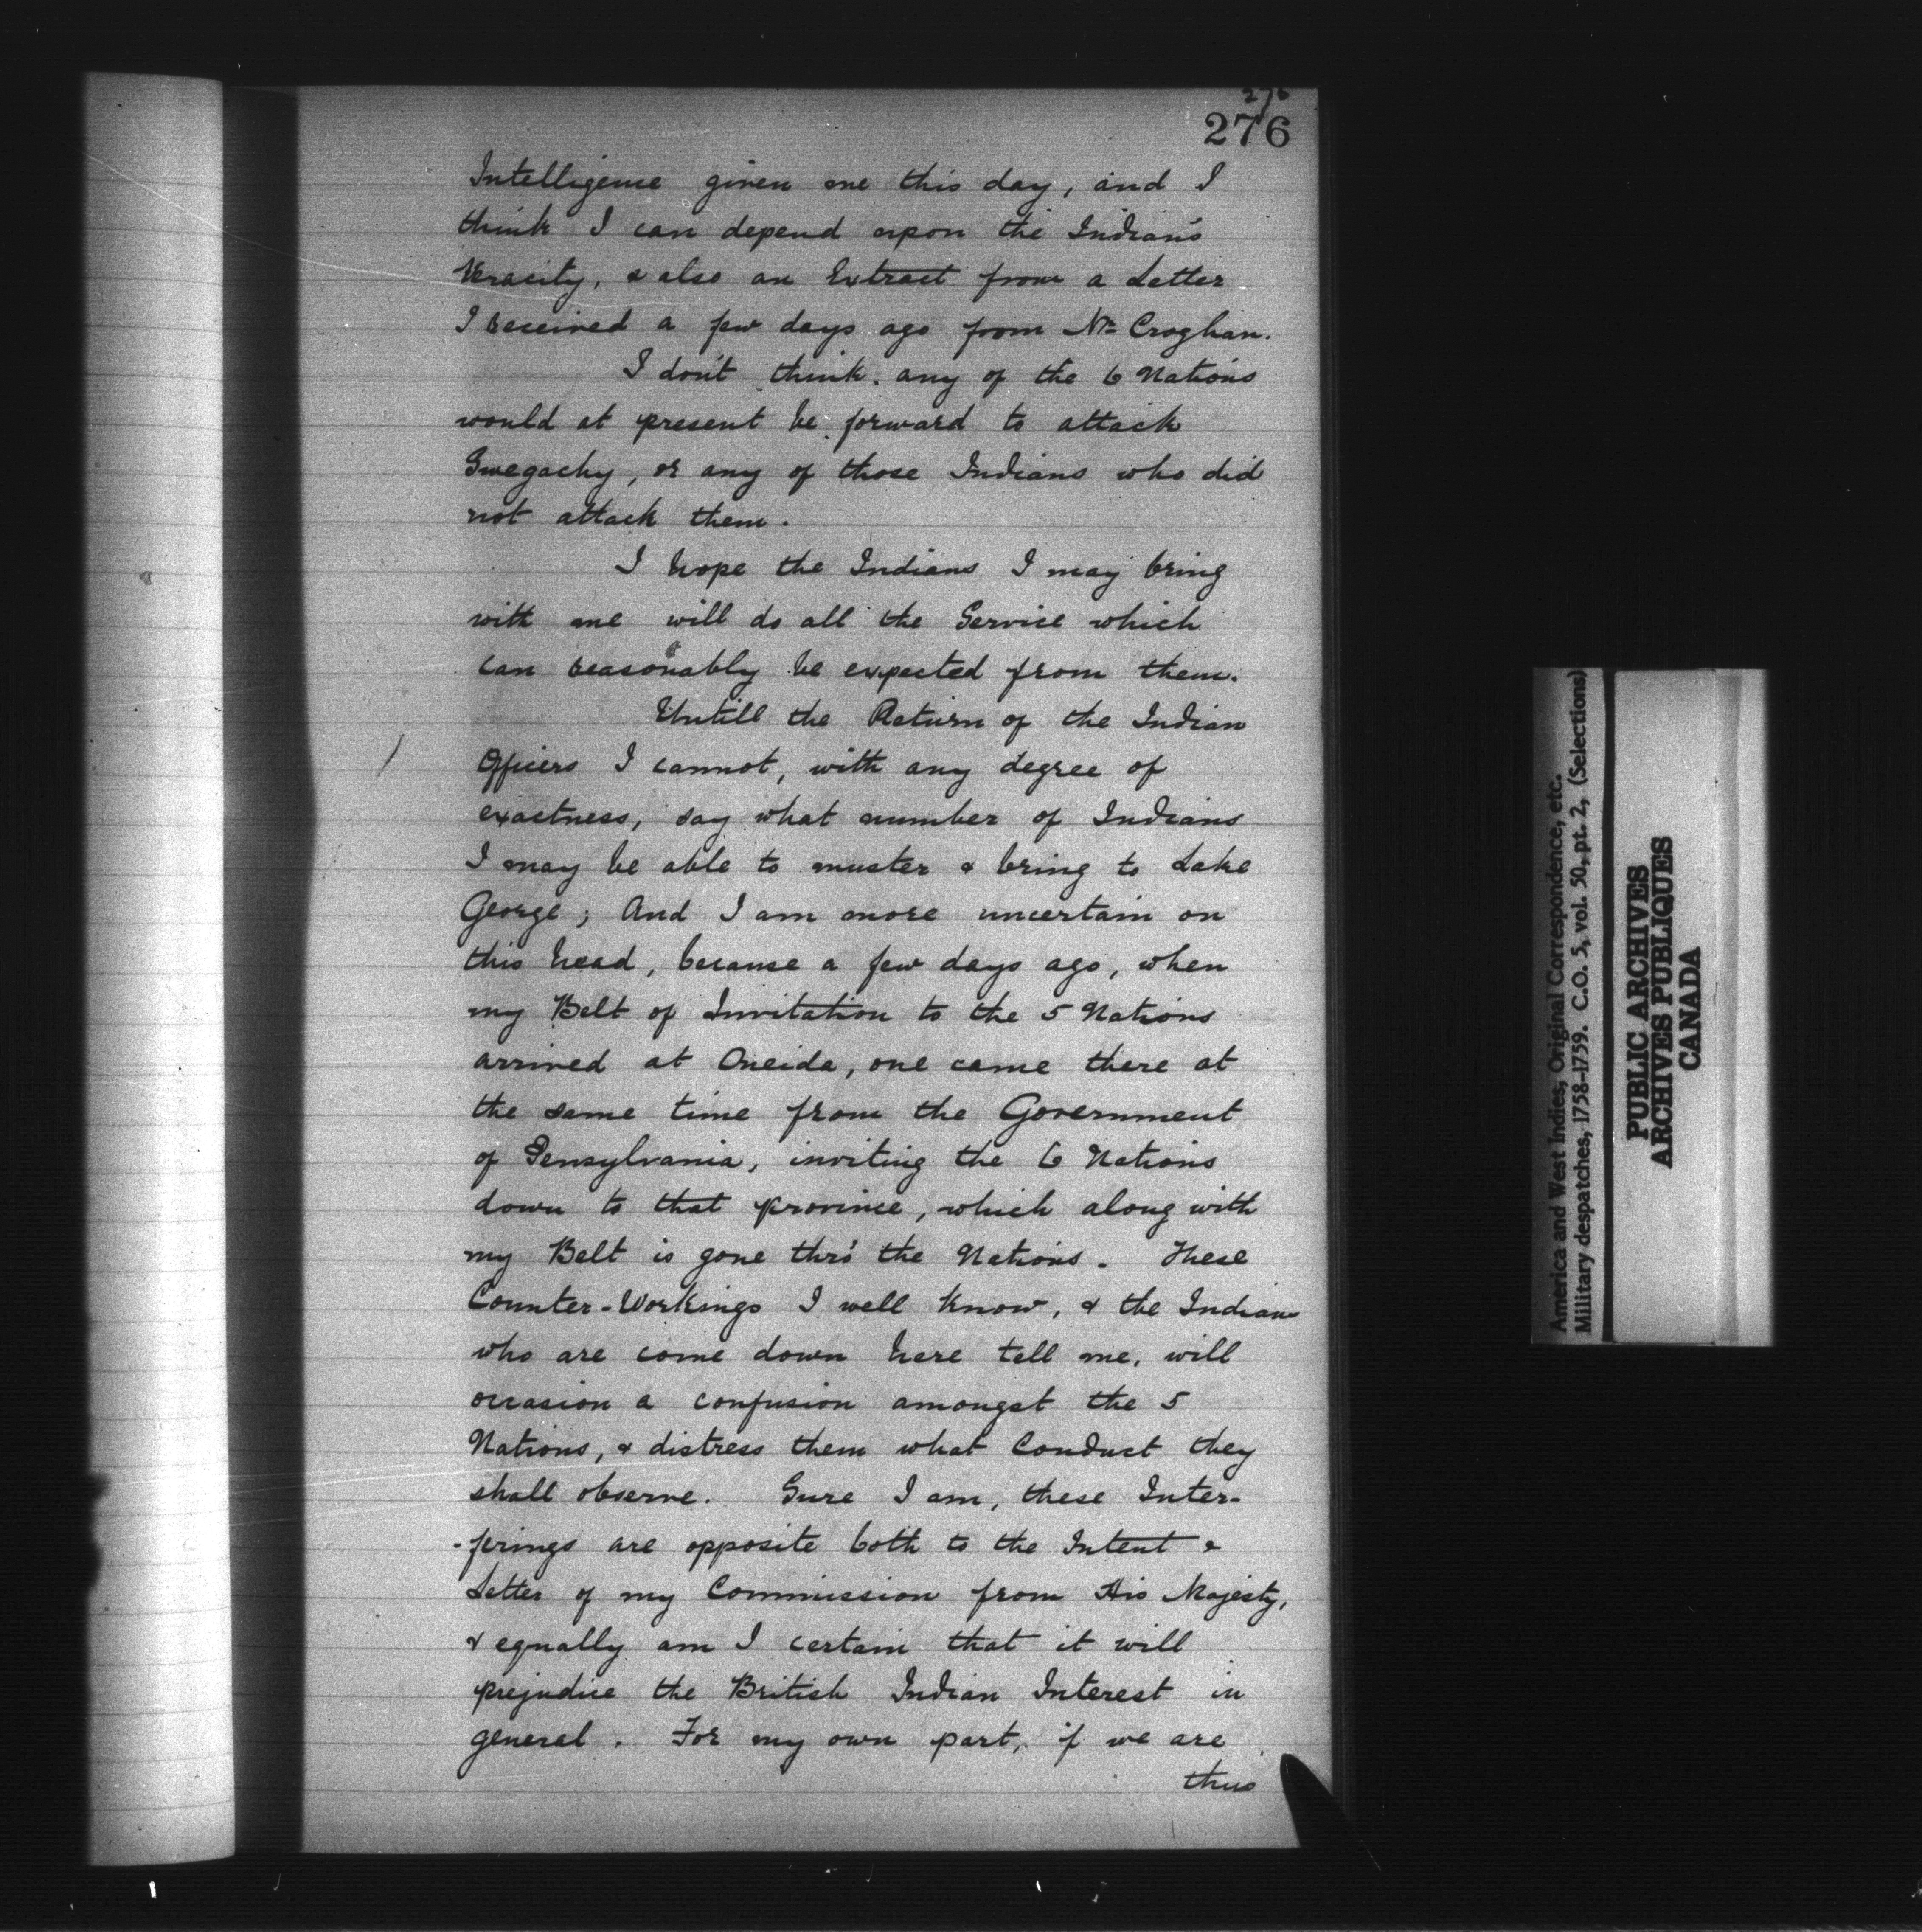 276
276
Intelligence given me this day, and I
think I can depend upon the Indian's
Veracity, & also an Extract from a Letter
I received a few days ago from Mr Croghan.
I don't think any of the 6 Nations
would at present be forward to attack
Swegachy, or any of those Indians who did
not attack them.
I hope the Indians I may bring
with me will do all the Service which
can reasonably be expected from them.
Untill the Return of the Indian
Officers I cannot, with any degree of
exactness, say what number of Indians
I may be able to muster & bring to Lake
George; And I am more uncertain on
this head, because a few days ago, when
my Belt of Invitation to the 5 Nations
arrived at Oneida, one came there at
the same time from the Government
of Pensylvania, inviting the 6 Nations
down to that province, which along with
my Belt is gone thro' the Nations. These
Counter-Workings I well know, & the Indians
who are come down here tell me, will
occasion a confusion amongst the 5
Nations, & distress them what Conduct they
shall observe. Sure I am, these Inter-
-ferings are opposite both to the Intent &
Letter of my Commission from His Majesty,
& equally am I certain that it will
prejudice the British Indian Interest in
general. For my own part, if we are
thus
America and West Indies, Original Correspondence, etc.
Military despatches, 1758-1759. C.O. 5, vol. 50, pt. 2, (Selections)
PUBLIC ARCHIVES
ARCHIVES PUBLIQUES
CANADA